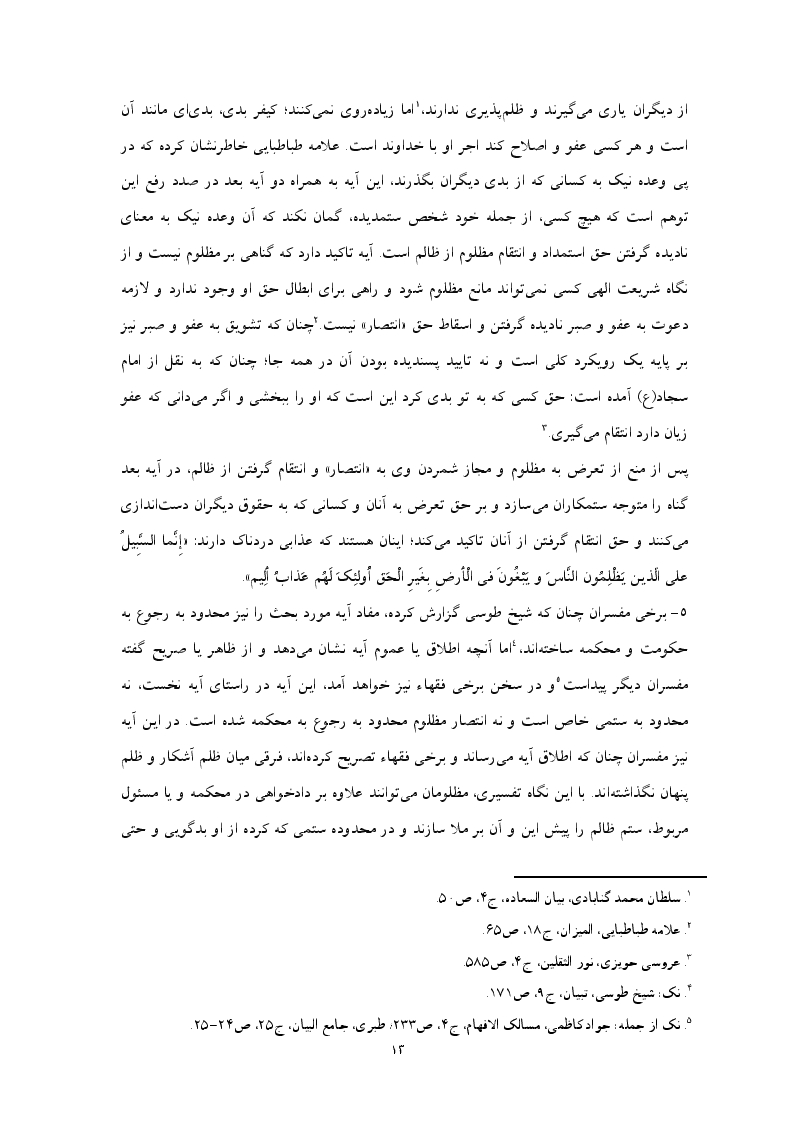 از دیگران یاری می‌گیرند و ظلم‌پذیری ندارند،۱اما زیاده‌روی نمی‌کنند؛ کیفر بدی، بدی‌ای مانند آن
است و هر کسی عفو و اصلاح کند اجر او با خداوند است. علامه طباطبایی خاطرنشان کرده که در
پی وعده نیک به کسانی که از بدی دیگران بگذرند، این آیه به همراه دو آیه بعد در صدد رفع این
توهم است که هیچ کسی، از جمله خود شخص ستمدیده، گمان نکند که آن وعده نیک به معنای
نادیده گرفتن حق استمداد و انتقام مظلوم از ظالم است. آیه تاکید دارد که گناهی بر مظلوم نیست و از
نگاه شریعت الهی کسی نمی‌تواند مانع مظلوم شود و راهی برای ابطال حق او وجود ندارد و لازمه
دعوت به عفو و صبر نادیده گرفتن و اسقاط حق «انتصار» نیست.۲چنان که تشویق به عفو و صبر نیز
بر پایه یک رویکرد کلی است و نه تایید پسندیده بودن آن در همه جا؛ چنان که به نقل از امام
سجاد(ع) آمده است: حق کسی که به تو بدی کرد این است که او را ببخشی و اگر می‌دانی که عفو
زیان دارد انتقام می‌گیری.۳
پس از منع از تعرض به مظلوم و مجاز شمردن وی به «انتصار» و انتقام گرفتن از ظالم، در آیه بعد
گناه را متوجه ستمکاران می‌سازد و بر حق تعرض به آنان و کسانی که به حقوق دیگران دست‌اندازی
می‌کنند و حق انتقام گرفتن از آنان تاکید می‌کند؛ اینان هستند که عذابی دردناک دارند: «إِنَّما السَّبِیلُ
علی الّذین یَظْلِمُون النَّاسَ و یَبْغُونَ فی الْأَرضِ بِغَیرِ الْحَق أُولئِکَ لَهُم عَذابُ أَلِیم».
۵- برخی مفسران چنان که شیخ طوسی گزارش کرده، مفاد آیه مورد بحث را نیز محدود به رجوع به
حکومت و محکمه ساخته‌اند،۴اما آنچه اطلاق یا عموم آیه نشان می‌دهد و از ظاهر یا صریح گفته
مفسران دیگر پیداست۵و در سخن برخی فقهاء نیز خواهد آمد، این آیه در راستای آیه نخست، نه
محدود به ستمی خاص است و نه انتصار مظلوم محدود به رجوع به محکمه شده است. در این آیه
نیز مفسران چنان که اطلاق آیه می‌رساند و برخی فقهاء تصریح کرده‌اند، فرقی میان ظلم آشکار و ظلم
پنهان نگذاشته‌اند. با این نگاه تفسیری، مظلومان می‌توانند علاوه بر دادخواهی در محکمه و یا مسئول
مربوط، ستم ظالم را پیش این و آن بر ملا سازند و در محدوده ستمی که کرده از او بدگویی و حتی
۱. سلطان محمد گنابادی، بیان السعاده، ج۴، ص۵۰.
۲. علامه طباطبایی، المیزان، ج۱۸، ص۶۵.
۳. عروسی حویزی، نور الثقلین، ج۴، ص۵۸۵.
۴. نک: شیخ طوسی، تبیان، ج۹، ص۱۷۱.
۵. نک از جمله: جوادکاظمی، مسالک الافهام، ج۴، ص۲۳۳؛ طبری، جامع البیان، ج۲۵، ص۲۴-۲۵.
۱۳